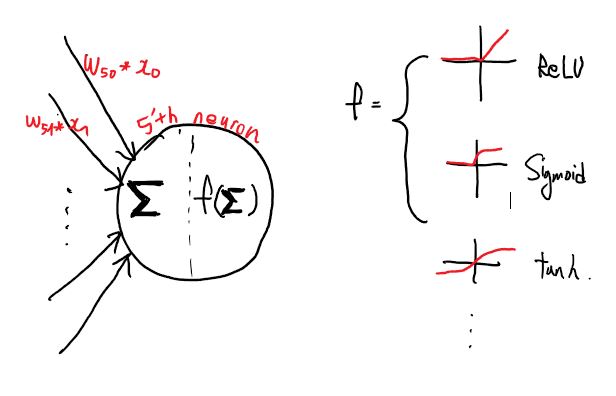 W50 * x0
W51 * x1
5'th neuron
Σ f(Σ)
f =
ReLU
Sigmoid
tanh.